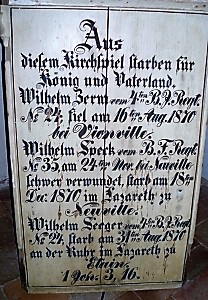 Aus
diesem Kirchspiel starben für
König und Vaterland.
Wilhelm Zerm vom 4ten B.J. Regt.
No 24, fiel am 16ten Aug. 1870
bei Vionville.
Wilhelm Speck vom B.F. Regt.
No 35, am 24ten Nov. bei Neuville
schwer verwundet, starb am 18ten
Dec. 1870 im Lazareth zu
Neuville.
Wilhelm Seeger vom 4ten B.J. Regt.
No 24, starb am 31ten Aug. 1870
an der Ruhr im Lazareth zu
Etain.
1 Joh. 3, 16.